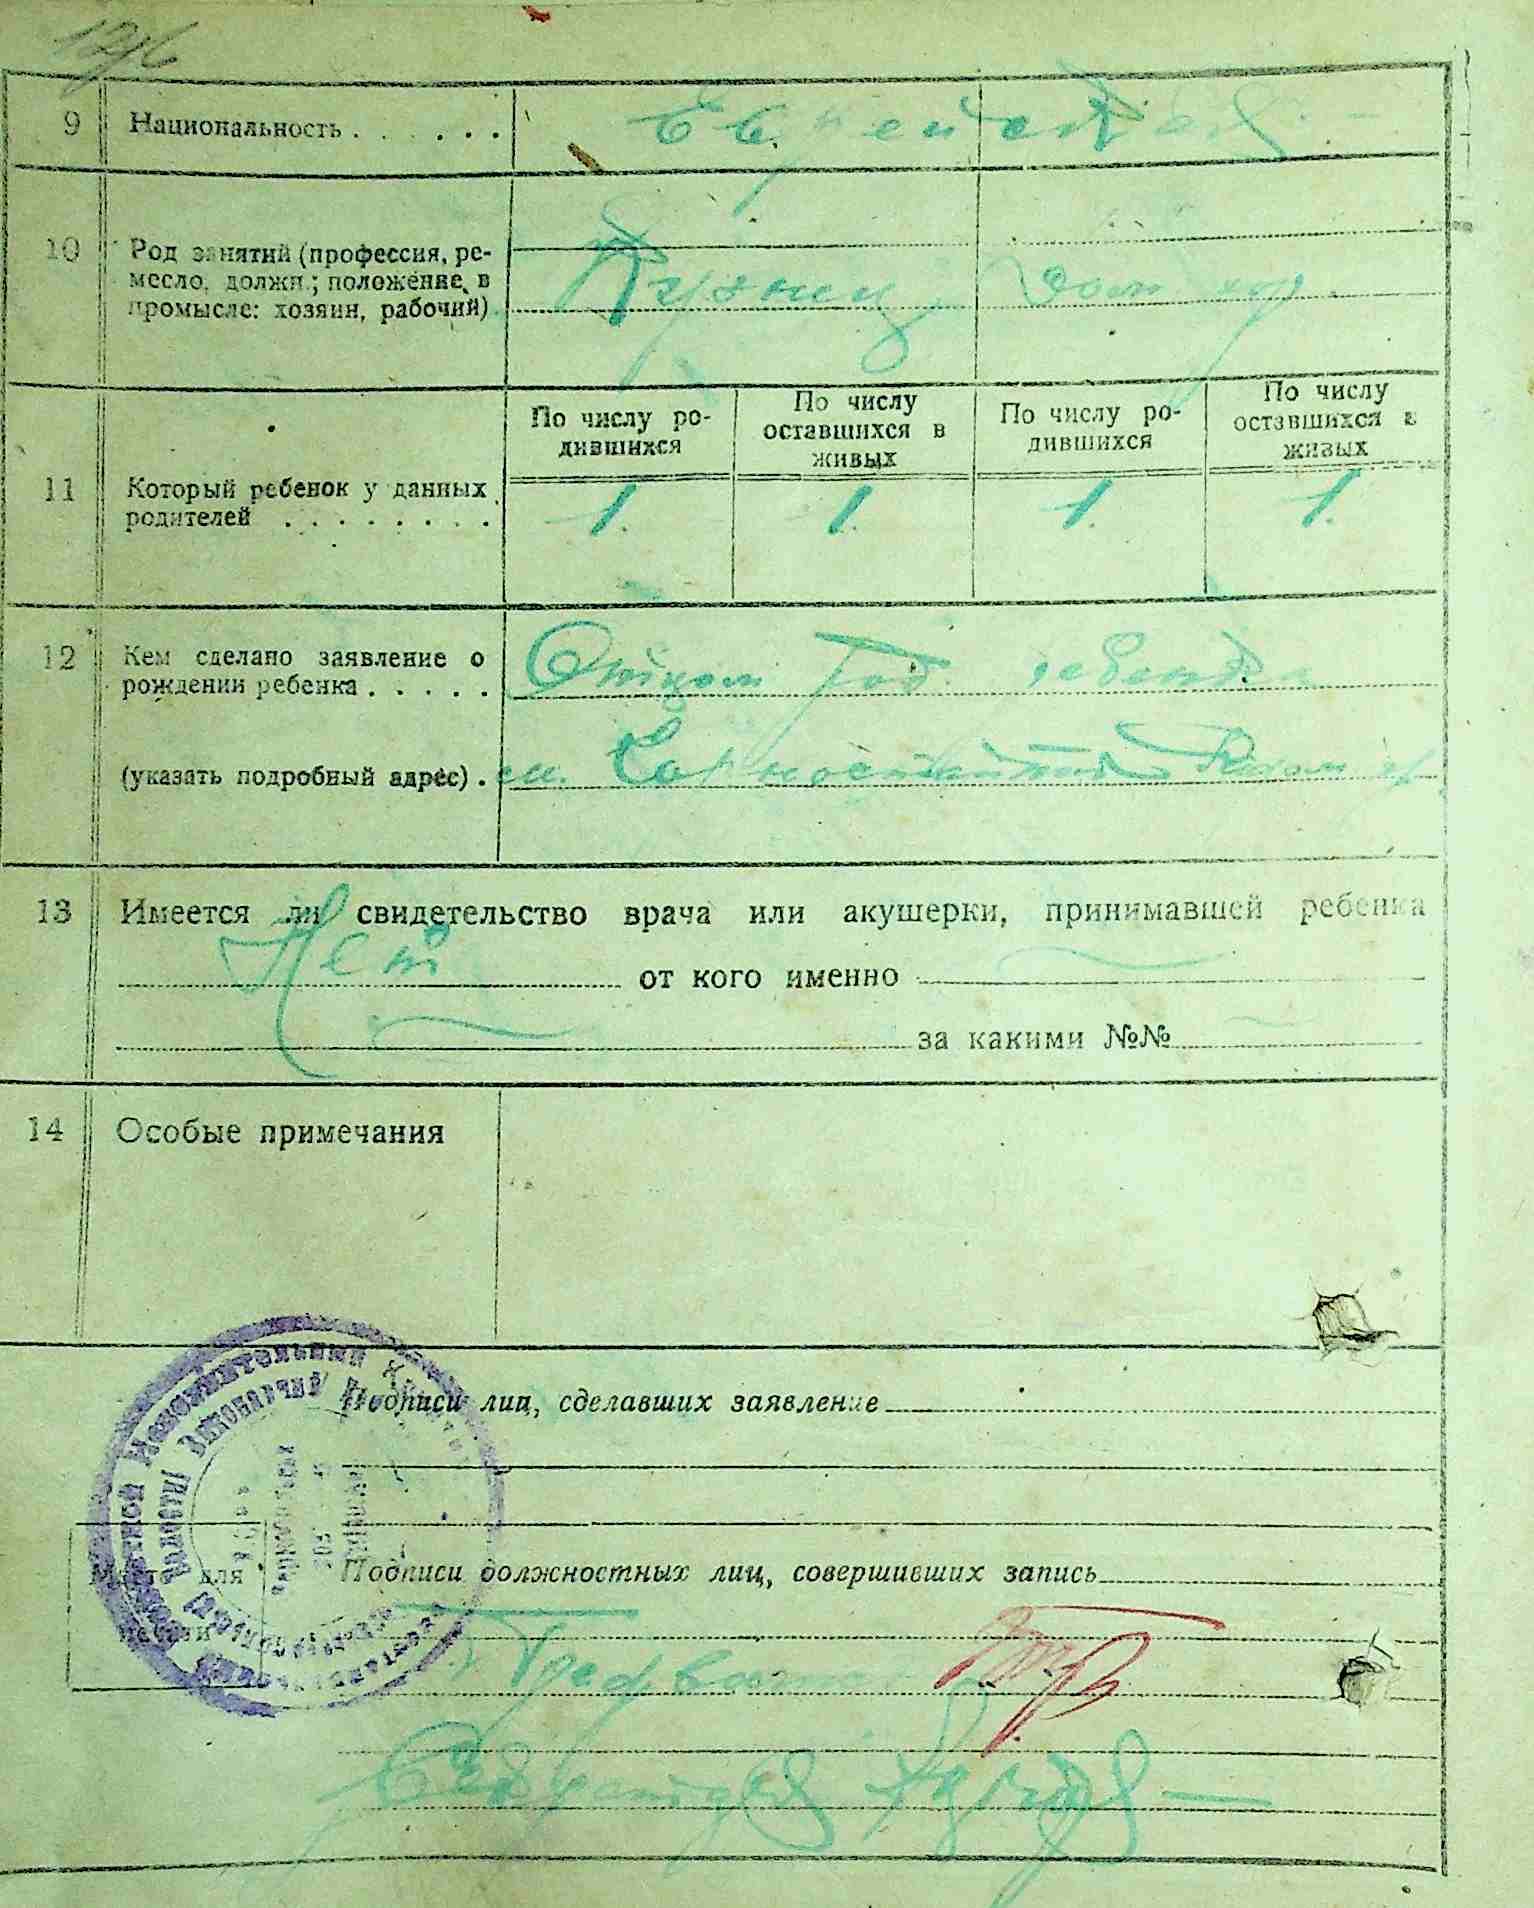 126
9 Национальность . . . . . . Еврейская
10 Род занятий (профессия, ре-
месло, должн.; положение в
промысле: хозяин, рабочий)
Кузнец дом. хоз.
По числу ро-
дившихся
По числу
оставшихся в
живых
По числу ро-
дившихся
По числу
оставшихся в
живых
11 Который ребенок у данных
родителей . . . . . . . .
1. 1. 1. 1.
12 Кем сделано заявление о
рождении ребенка . . . . .
Отцом род. ребенка
(указать подробный адрес) . м.
13 Имеется ли свидетельство врача или акушерки, принимавшей ребенка
Нет от кого именно
за какими №№
14 Особые примечания
Подписи лиц, сделавших заявление
Место для
печати
Подписи должностных лиц, совершивших запись